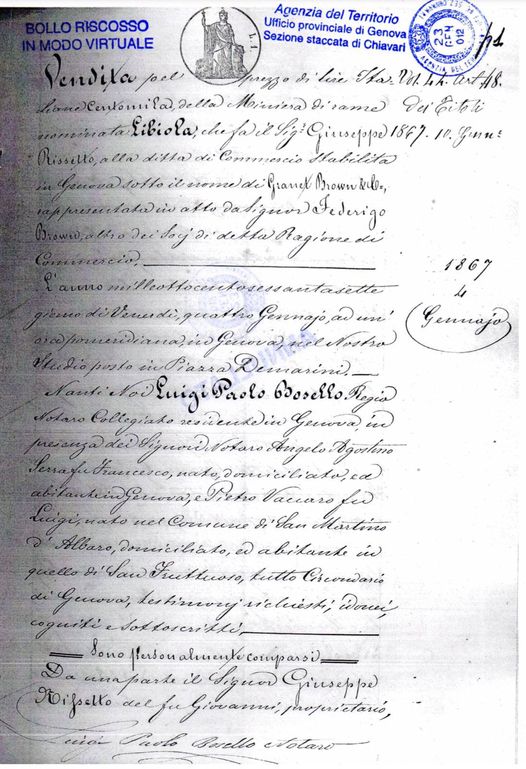 BOLLO RISCOSSO
IN MODO VIRTUALE
L. 1
Agenzia del Territorio
Ufficio provinciale di Genova
Sezione staccata di Chiavari
23
GEN
2012
Vendita pel prezzo di lire Ita-
liane Centomila, della Miniera di rame
nominata Libiola, che fa il Sigr. Giuseppe
Rissetto, alla ditta di Commercio stabilita
in Genova sotto il nome di Granet Brown & C.,
rappresentata in atto da Signor Federigo
Brown, altro dei Socj di detta Ragione di
Commercio.
Vol. 44 Art. 48.
Dei Titoli
1867. 10. Genn.
1867
4
Gennajo
L'anno milleottocentosessantasette
giorno di Venerdì, quattro Gennajo, ad un'
ora pomeridiana, in Genova, nel Nostro
Studio posto in Piazza Demarini.
Nanti Noi Luigi Paolo Bosello Regio
Notaro Collegiato residente in Genova, in
presenza dei Signori Notaro Angelo Agostino
Serra fu Francesco, nato, domiciliato, ed
abitante in Genova, e Pietro Vaccaro fu
Luigi, nato nel Comune di San Martino
d'Albaro, domiciliato, ed abitante in
quello di San Fruttuoso, tutto Circondario
di Genova, testimonj richiesti, idonei,
cogniti e sottoscritti.
Sono personalmente comparsi
Da una parte il Signor Giuseppe
Rissetto del fu Giovanni, proprietario,
Luigi Paolo Bosello Notaro